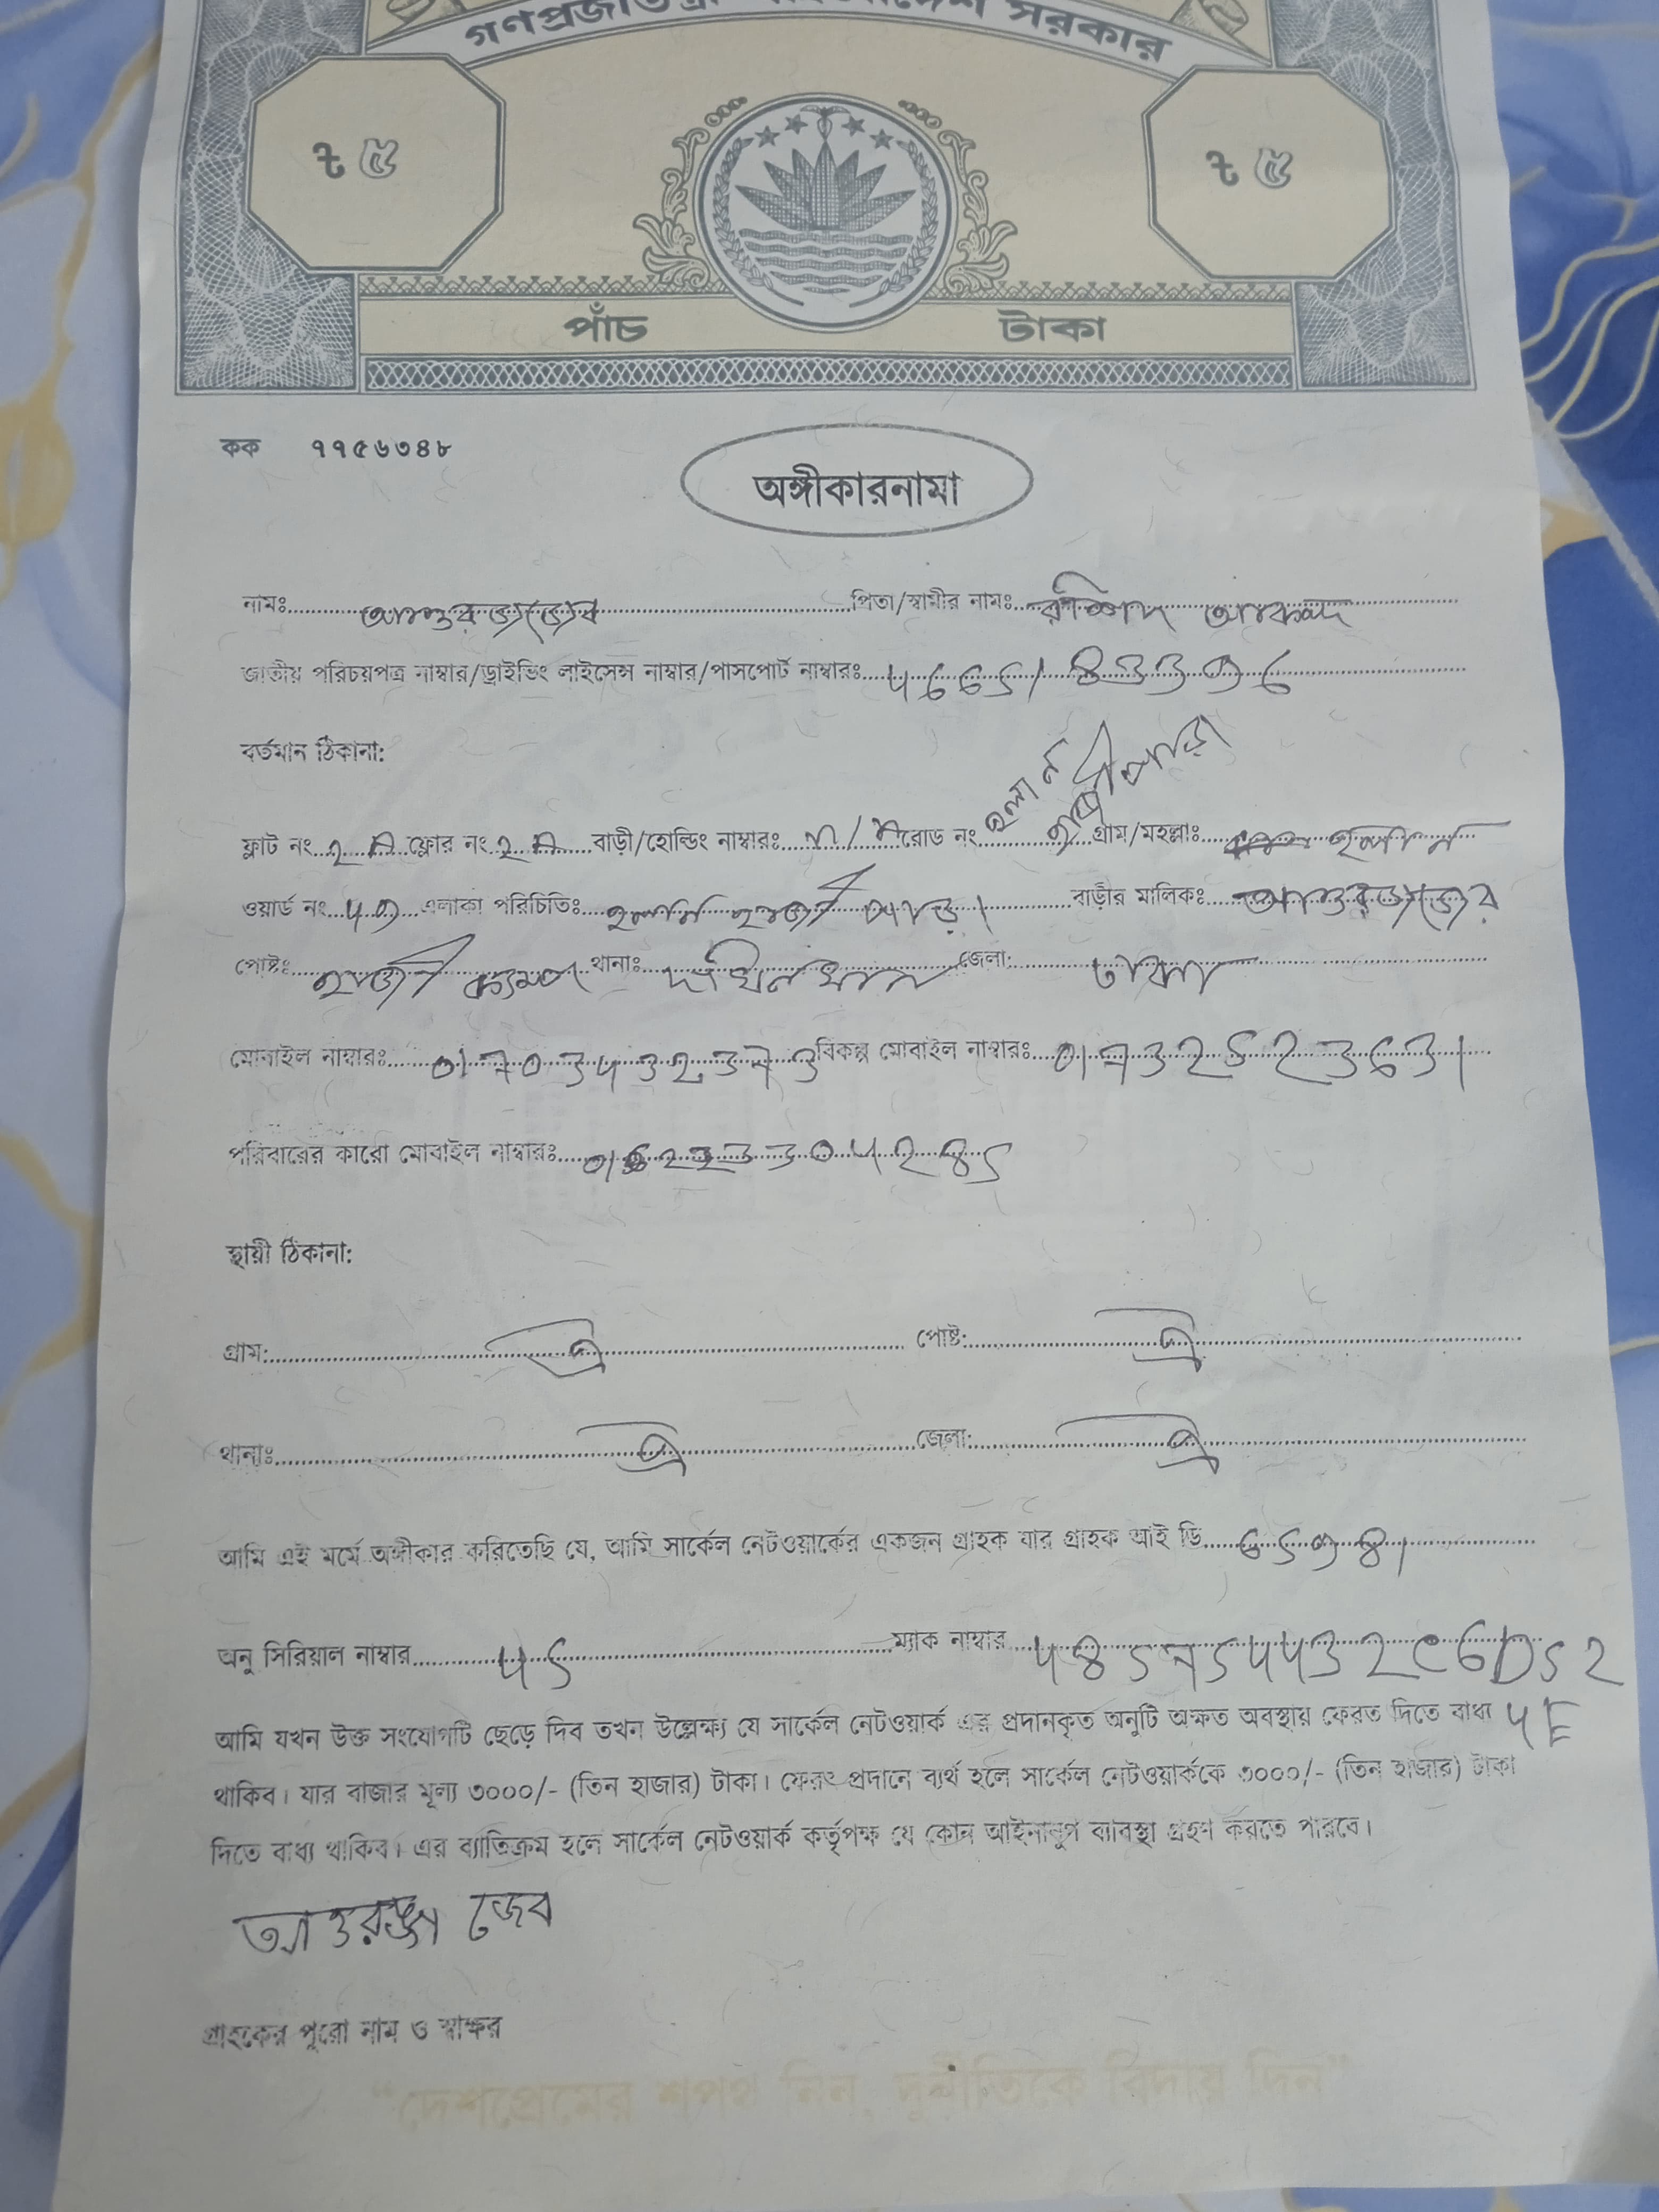 গণপ্রজাতন্ত্রী বাংলাদেশ সরকার
৳ ৫ ৳ ৫
পাঁচ টাকা
কক ৭৭৫৬৩৪৮
অঙ্গীকারনামা
নামঃ আওরঙ্গজেব পিতা/স্বামীর নামঃ রশিদ আহমদ
জাতীয় পরিচয়পত্র নাম্বার/ড্রাইভিং লাইসেন্স নাম্বার/পাসপোর্ট নাম্বারঃ
বর্তমান ঠিকানা:
হলান হাজীপাড়া
ফ্লাট নং ২ A ফ্লোর নং ২ A বাড়ী/হোল্ডিং নাম্বারঃ রোড নং গ্রাম/মহল্লাঃ হলান
ওয়ার্ড নং এলাকা পরিচিতিঃ হলান হাজী পাড়া বাড়ীর মালিকঃ আওরঙ্গজেব
পোষ্টঃ হাজী ক্যাম্প থানাঃ দক্ষিনখান জেলা: ঢাকা
মোবাইল নাম্বারঃ 01703432373 বিকল্প মোবাইল নাম্বারঃ 01732523631
পরিবারের কারো মোবাইল নাম্বারঃ
স্থায়ী ঠিকানা:
গ্রাম: ঐ পোষ্ট: ঐ
থানাঃ ঐ জেলা: ঐ
আমি এই মর্মে অঙ্গীকার করিতেছি যে, আমি সার্কেল নেটওয়ার্কের একজন গ্রাহক যার গ্রাহক আই ডি
অনু সিরিয়াল নাম্বার 45 ম্যাক নাম্বার 485754432C6D52
আমি যখন উক্ত সংযোগটি ছেড়ে দিব তখন উল্লেক্ষ্য যে সার্কেল নেটওয়ার্ক এর প্রদানকৃত অনুটি অক্ষত অবস্থায় ফেরত দিতে বাধ্য 4E
থাকিব। যার বাজার মূল্য ৩০০০/- (তিন হাজার) টাকা। ফেরৎ প্রদানে ব্যর্থ হলে সার্কেল নেটওয়ার্ককে ৩০০০/- (তিন হাজার) টাকা
দিতে বাধ্য থাকিব। এর ব্যাতিক্রম হলে সার্কেল নেটওয়ার্ক কর্তৃপক্ষ যে কোন আইনানুগ ব্যাবস্থা গ্রহণ করতে পারবে।
আওরঙ্গ জেব
গ্রাহকের পুরো নাম ও স্বাক্ষর
“দেশপ্রেমের শপথ নিন, দুর্নীতিকে বিদায় দিন”